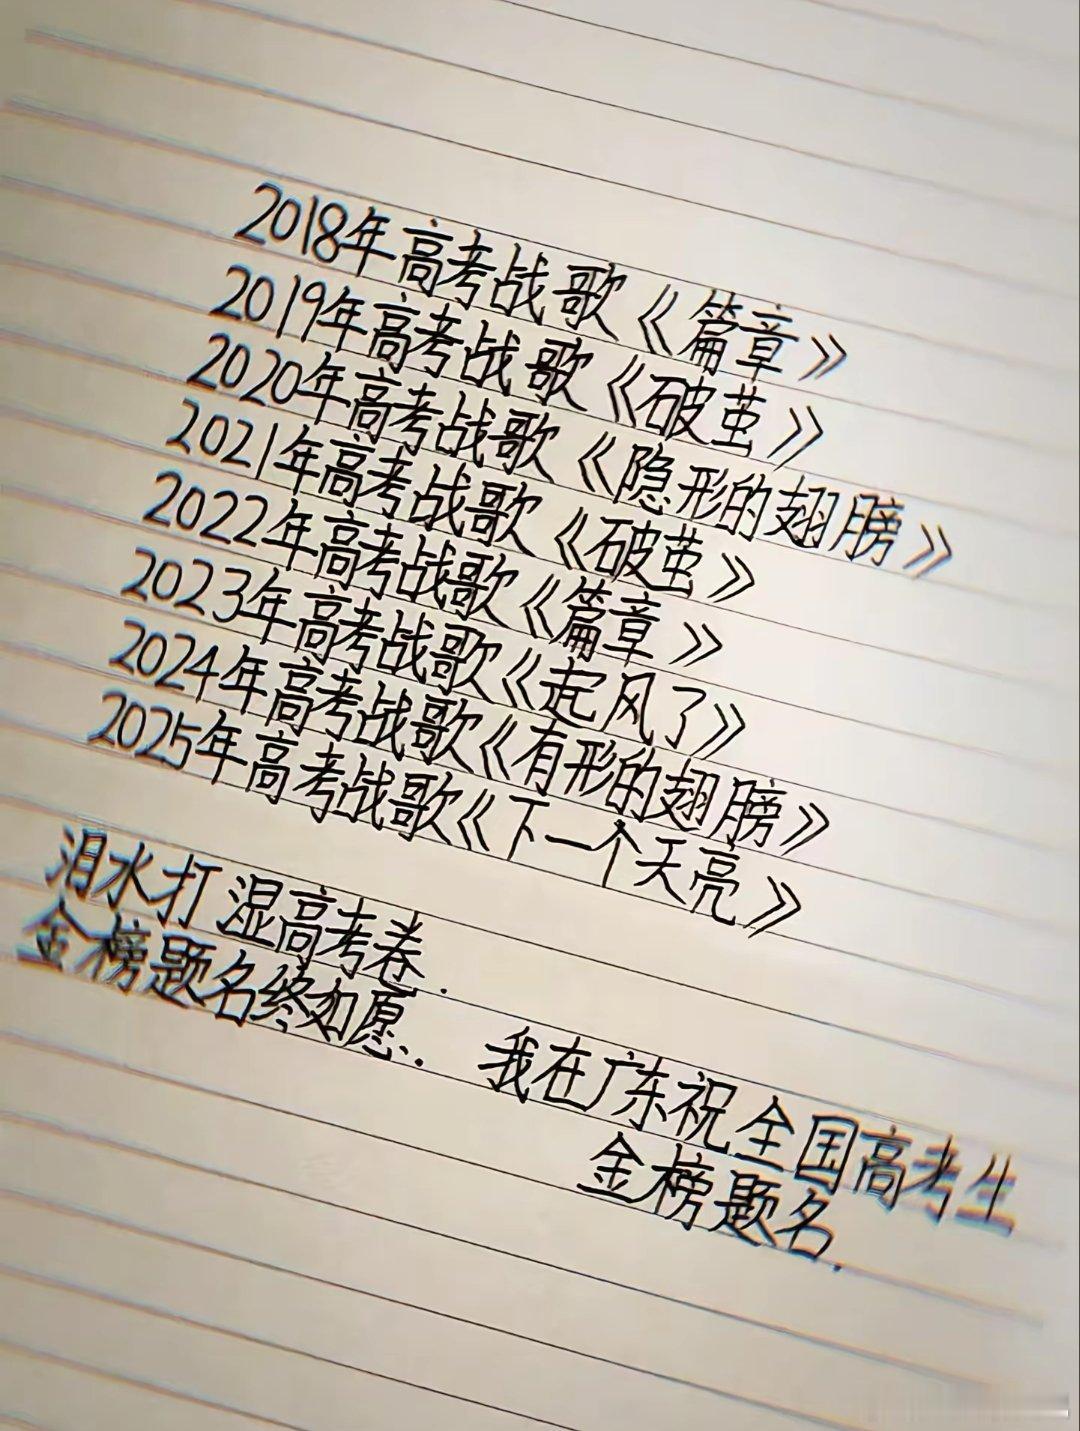 2018年高考战歌《篇章》
2019年高考战歌《破茧》
2020年高考战歌《隐形的翅膀》
2021年高考战歌《破茧》
2022年高考战歌《篇章》
2023年高考战歌《起风了》
2024年高考战歌《有形的翅膀》
2025年高考战歌《下一个天亮》
泪水打湿高考卷.
金榜题名终如愿.
我在广东祝全国高考生
金榜题名.